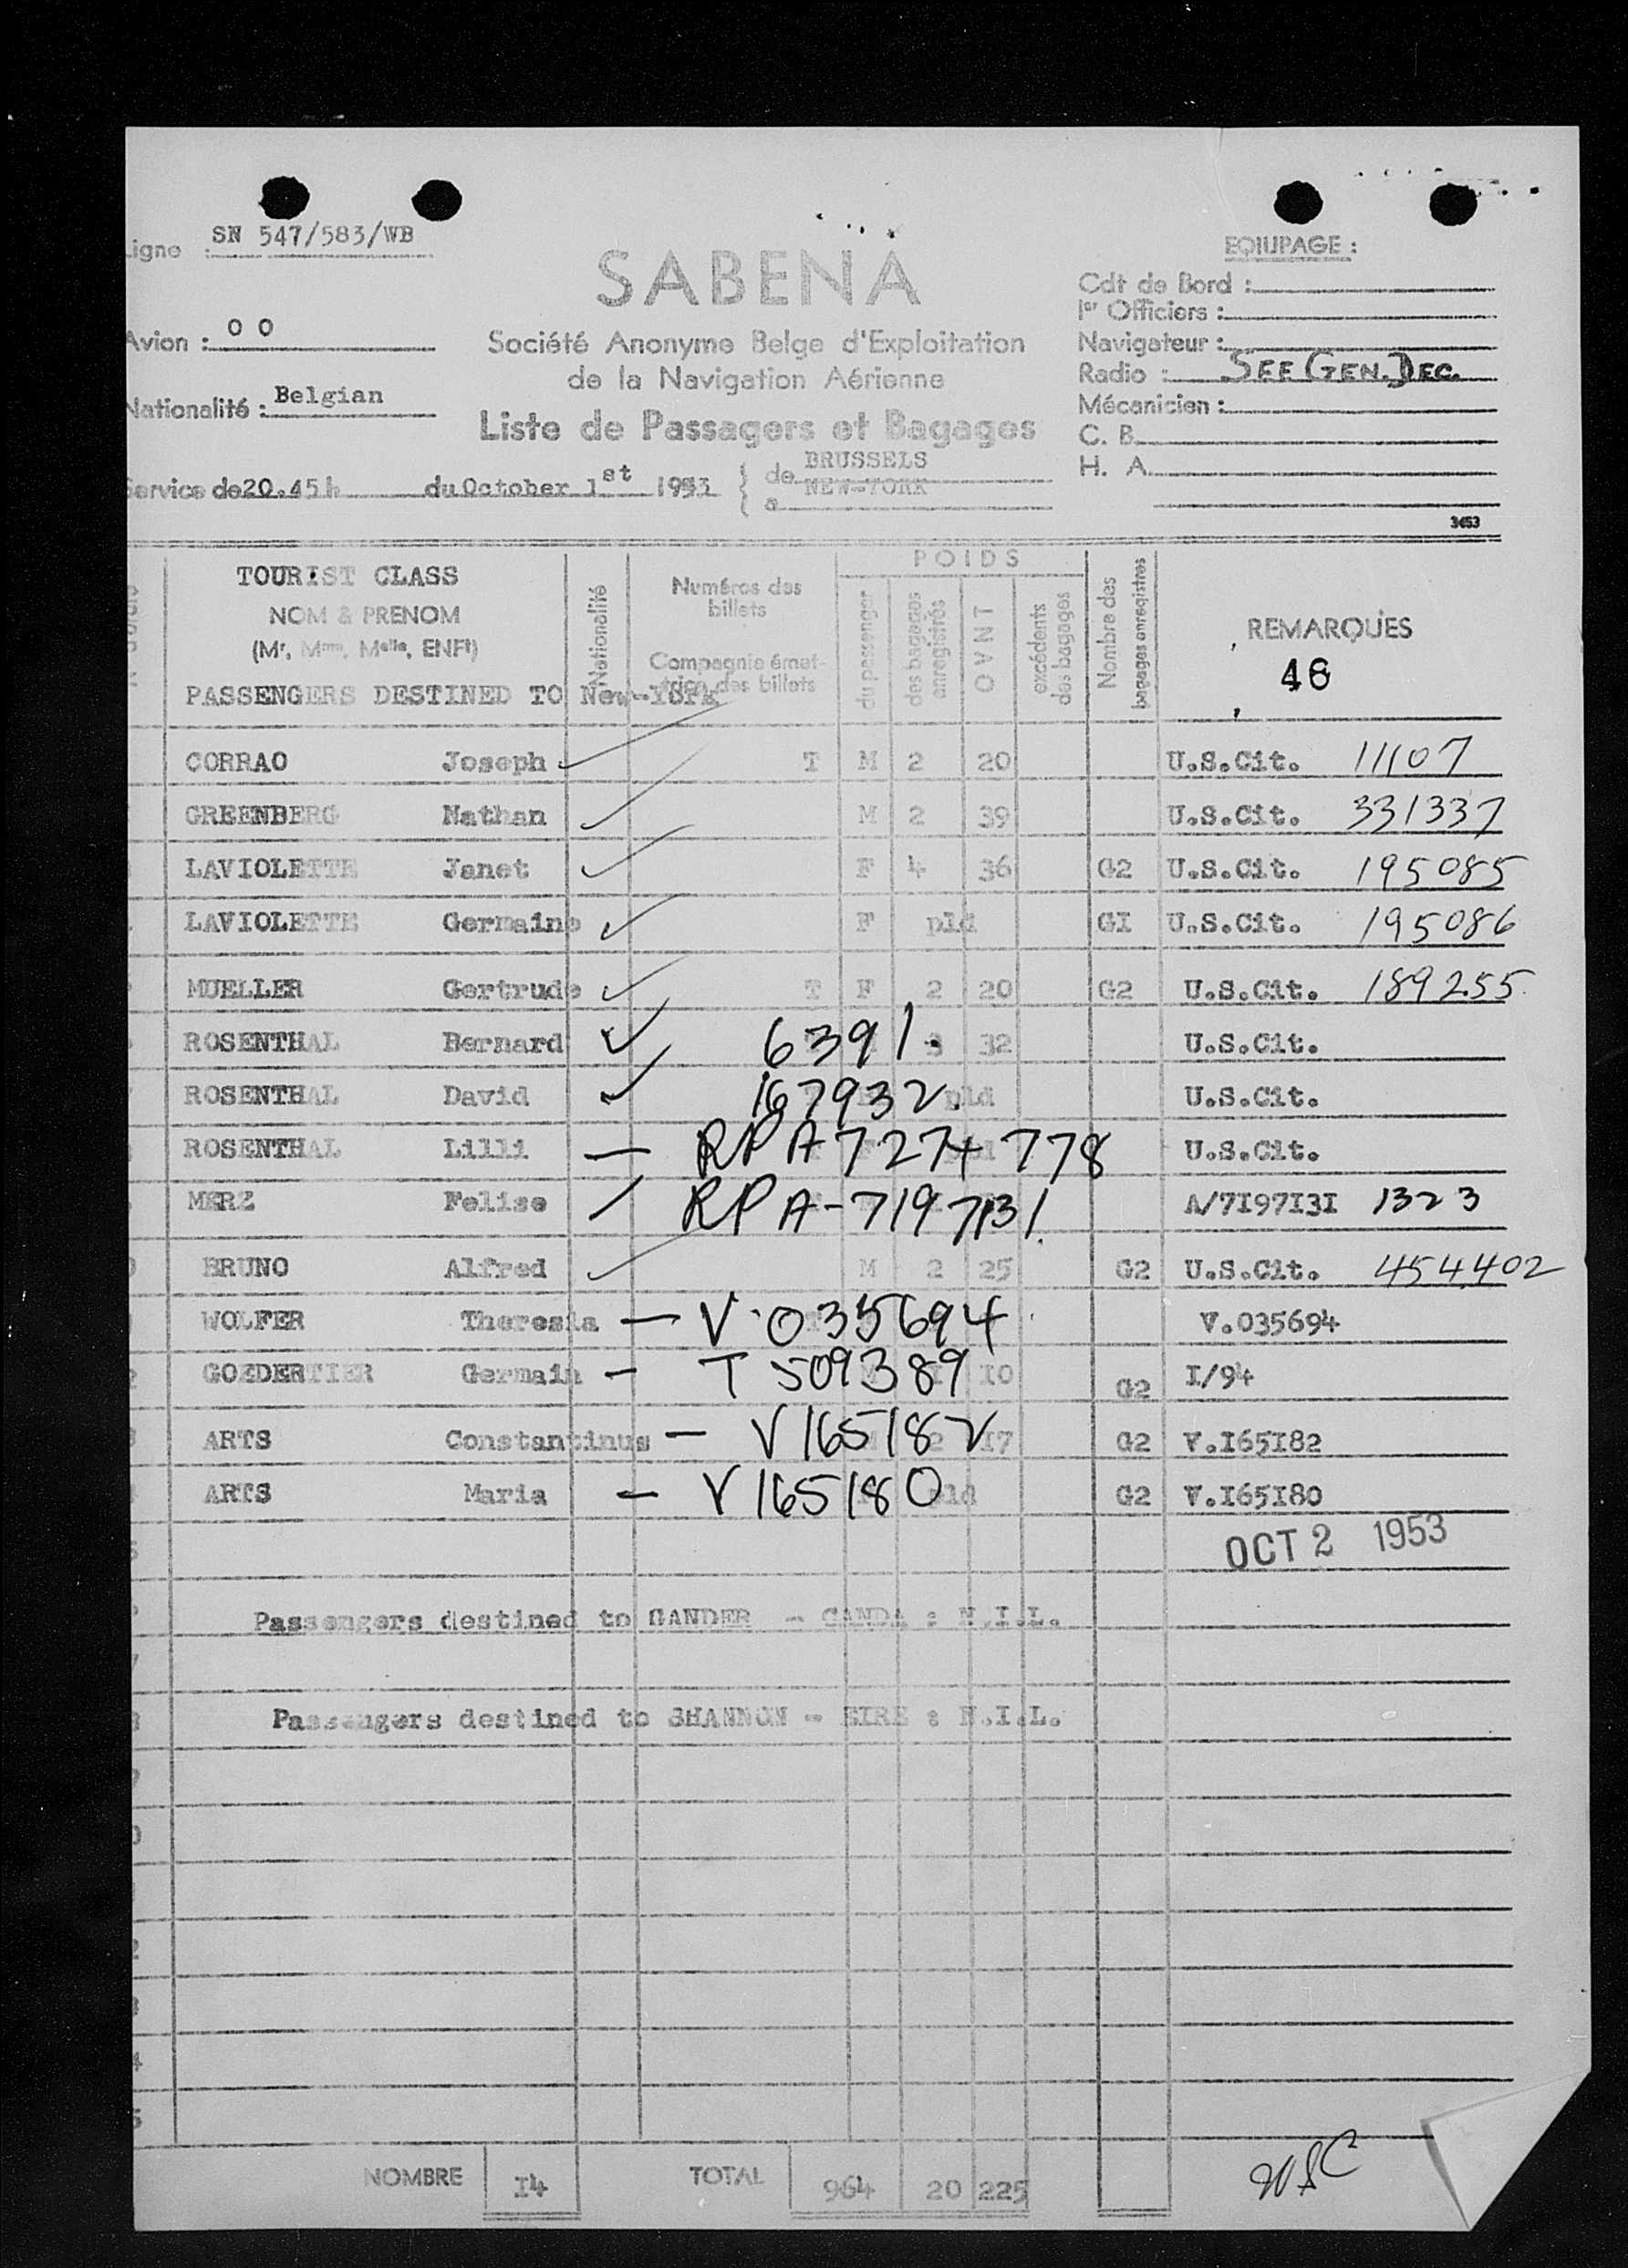 Ligne : SN 547/583/WB
Avion : O O
Nationalité : Belgian
SABENA
Société Anonyme Belge d'Exploitation
de la Navigation Aérienne
Liste de Passagers et Bagages
EQIUPAGE :
Cdt de Bord :
1er Officiers :
Navigateur :
Radio : SEE GEN. DEC.
Mécanicien :
C. B.
H. A.
Service de 20.45 h du October 1st 1953 { de BRUSSELS
a NEW-YORK
3453
TOURIST CLASS
NOM & PRENOM
(Mr, Mme, Melle, ENFt)
Nationalité
Numéros des billets
Compagnie émet-trice des billets
POIDS
du passenger
des bagages enregistrés
O V N T
excédents des bagages
Nombre des bagages enregistres
REMARQUES
46
PASSENGERS DESTINED TO New-York
CORRAO Joseph T M 2 20 U.S.Cit. 11107
GREENBERG Nathan M 2 39 U.S.Cit. 331337
LAVIOLETTE Janet F 4 36 G2 U.S.Cit. 195085
LAVIOLETTE Germaine F pld GI U.S.Cit. 195086
MUELLER Gertrude T F 2 20 G2 U.S.Cit. 189255
ROSENTHAL Bernard 6391. 3 32 U.S.Cit.
ROSENTHAL David 167932. pld U.S.Cit.
ROSENTHAL Lilli — RPA 7274778 U.S.Cit.
MERZ Felise RPA-7197131 A/7I97I3I 1323
BRUNO Alfred M 2 25 G2 U.S.Cit. 454402
WOLFER Theresia — V.035694 V.035694
GOEDERTIER Germain — T 509389 10 G2 I/94
ARTS Constantinus — V165182 2 17 G2 V.I65I82
ARTS Maria — V165180 pld G2 V.I65I80
OCT 2 1953
Passengers destined to GANDER - CANDA : N.I.L.
Passengers destined to SHANNON - EIRE : N.I.L.
NOMBRE I4 TOTAL 964 20 225